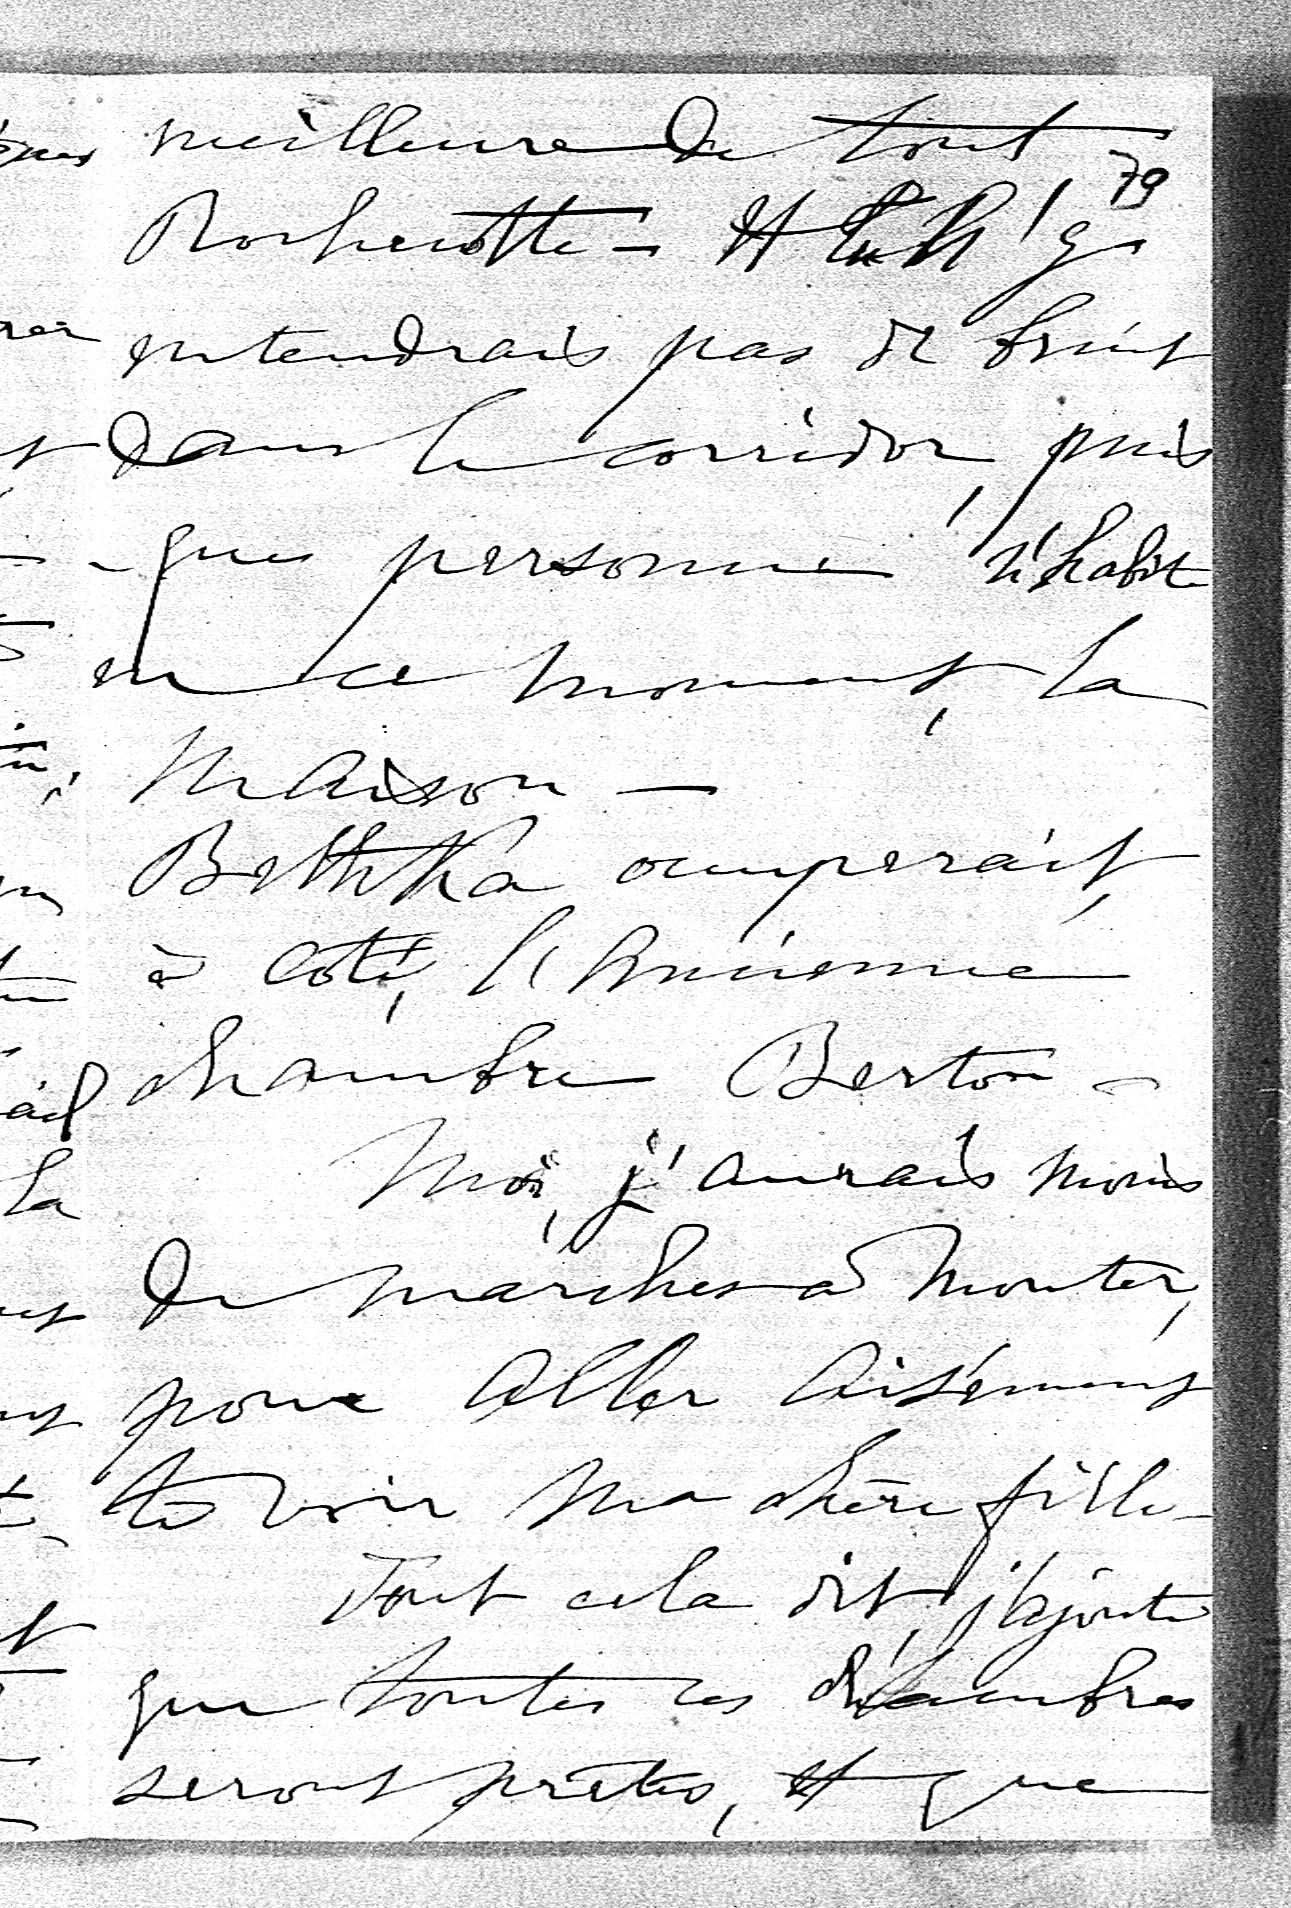 meilleure de tout
79
Rochecotte — et tu n'y
entendrais pas de bruit
dans le corridor, puis
- que personne n'habite
en ce moment, la
maison —
Bettika occuperait,
à coté, l'Ancienne
chambre Berton —
Moi, j'aurais moins
de marches à monter,
pour aller aisément
te voir ma chère fille —
Tout cela dit, j'ajoute
que toutes ces chambres
seront prêtes, et que